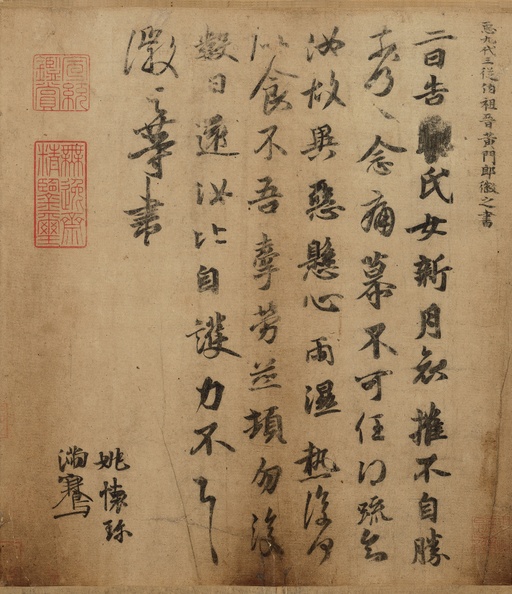 𢘑九代三從伯祖晉黃門郎徽之書
二日告氏女新月哀摧不自勝
奈何〻念痛慕不可任得疏知
汝故異惡懸心雨濕熱復何
似食不吾牽勞並頓勿復
數日還汝比自護力不具
徽之等書
姚懷珍
滿騫
宣統
鑑賞
無逸齋
精鑑璽